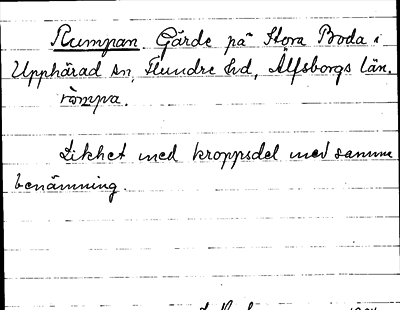 Rumpan Gärde på Stora Boda i
Upphärad sn, Flundre hd, Älfsborgs län.
ròmpa.
Likhet med kroppsdel med samma
benämning.